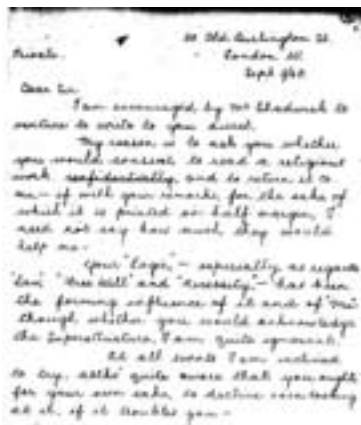 30 Old Burlington St.
London W.
Private. Sept 5/60
Dear Sir
I am encouraged by Mr Chadwick to
venture to write to you direct.
My reason is to ask you whether
you would consent to read a religious
work confidentially, and to return it to
me - if with your remarks, for the sake of
which it is printed on half margin, I
need not say how much they would
help me.
Your "Logic" - especially as regards
"Law" "Free Will" and "Necessity" - has been
the forming influence of it and of "me"
though whether you would acknowledge
the superstructure, I am quite ignorant.
At all events I am inclined
to try, altho' quite aware that you ought
for your own sake, to decline even looking
at it, if it troubles you -